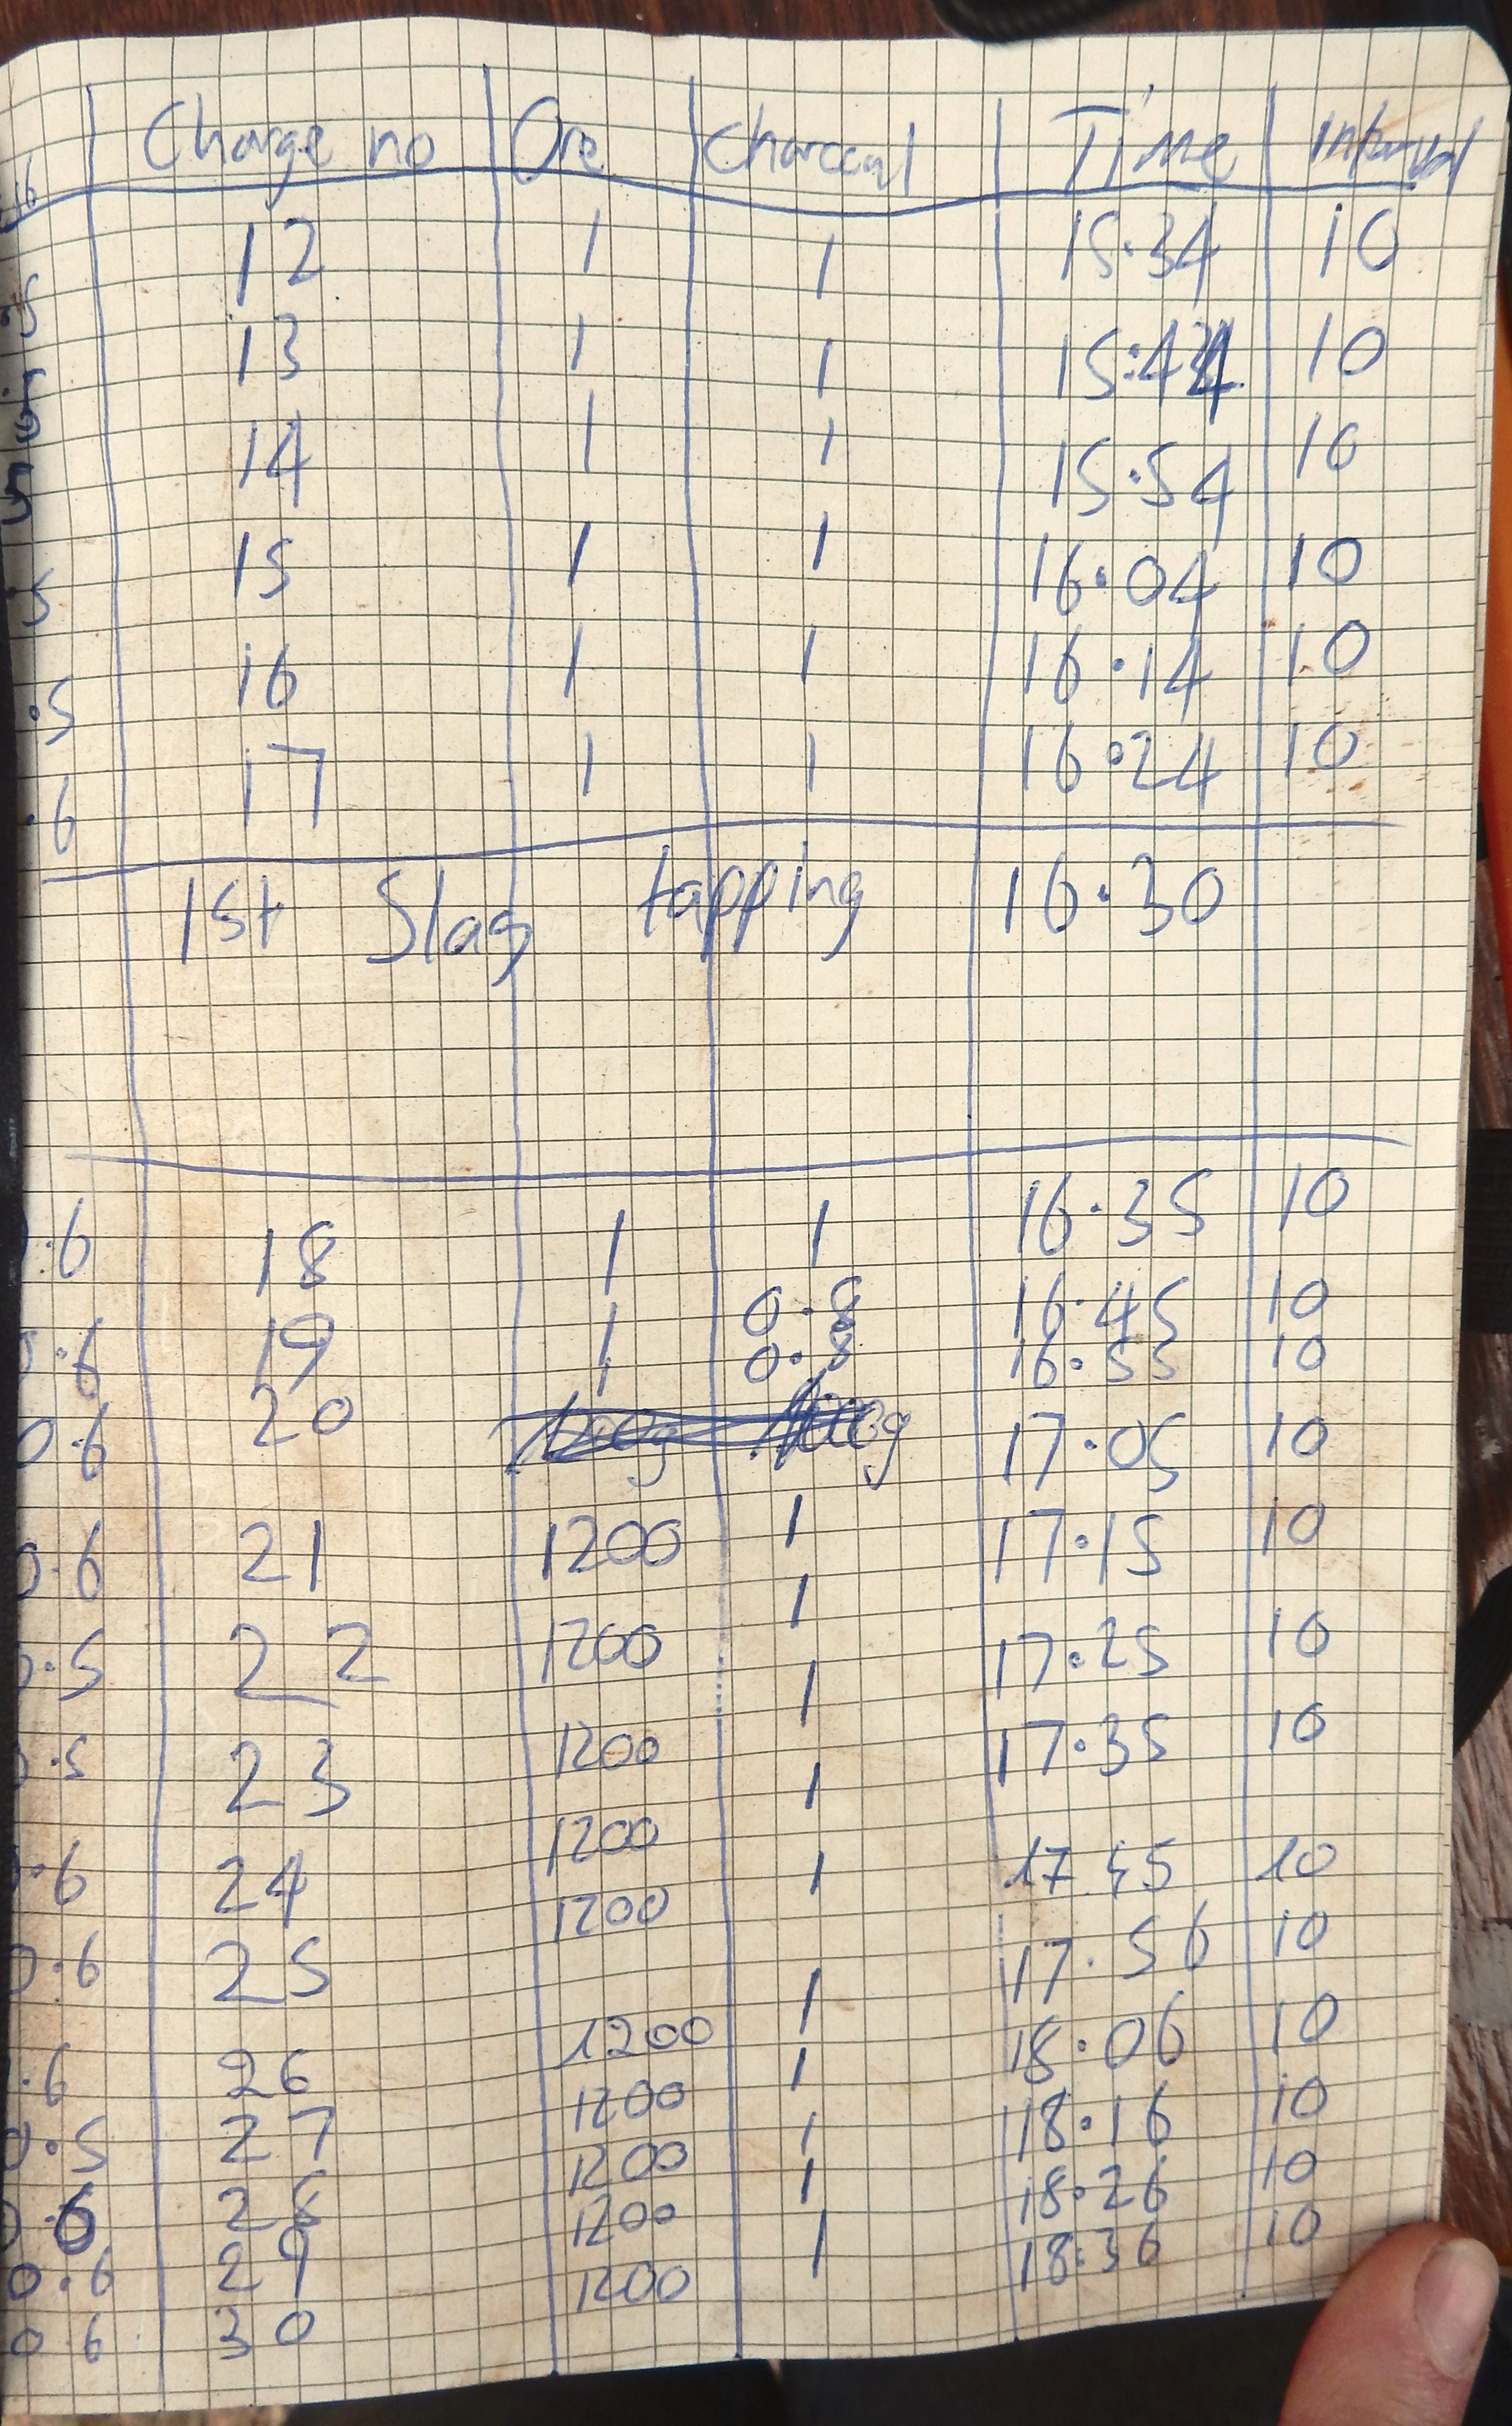 Charge no Ore Charcoal Time Interval
12 1 1 15.34 10
13 1 1 15:44 10
14 1 1 15.54 10
15 1 1 16.04 10
16 1 1 16.14 10
.6 17 1 1 16.24 10
1st Slag tapping 16.30
.6 18 1 1 16.35 10
.6 19 1 0.8 16.45 10
0.8 16.55 10
0.6 20 17.05 10
0.6 21 1200 1 17.15 10
.5 22 1200 1 17.25 10
.5 23 1200 1 17.35 10
.6 24 1200 1 17.45 10
0.6 25 1200 1 17.56 10
.6 26 1200 1 18.06 10
0.5 27 1200 1 18.16 10
28 1200 1 18.26 10
0.6 29 1200 1 18.36 10
0.6 30 1200